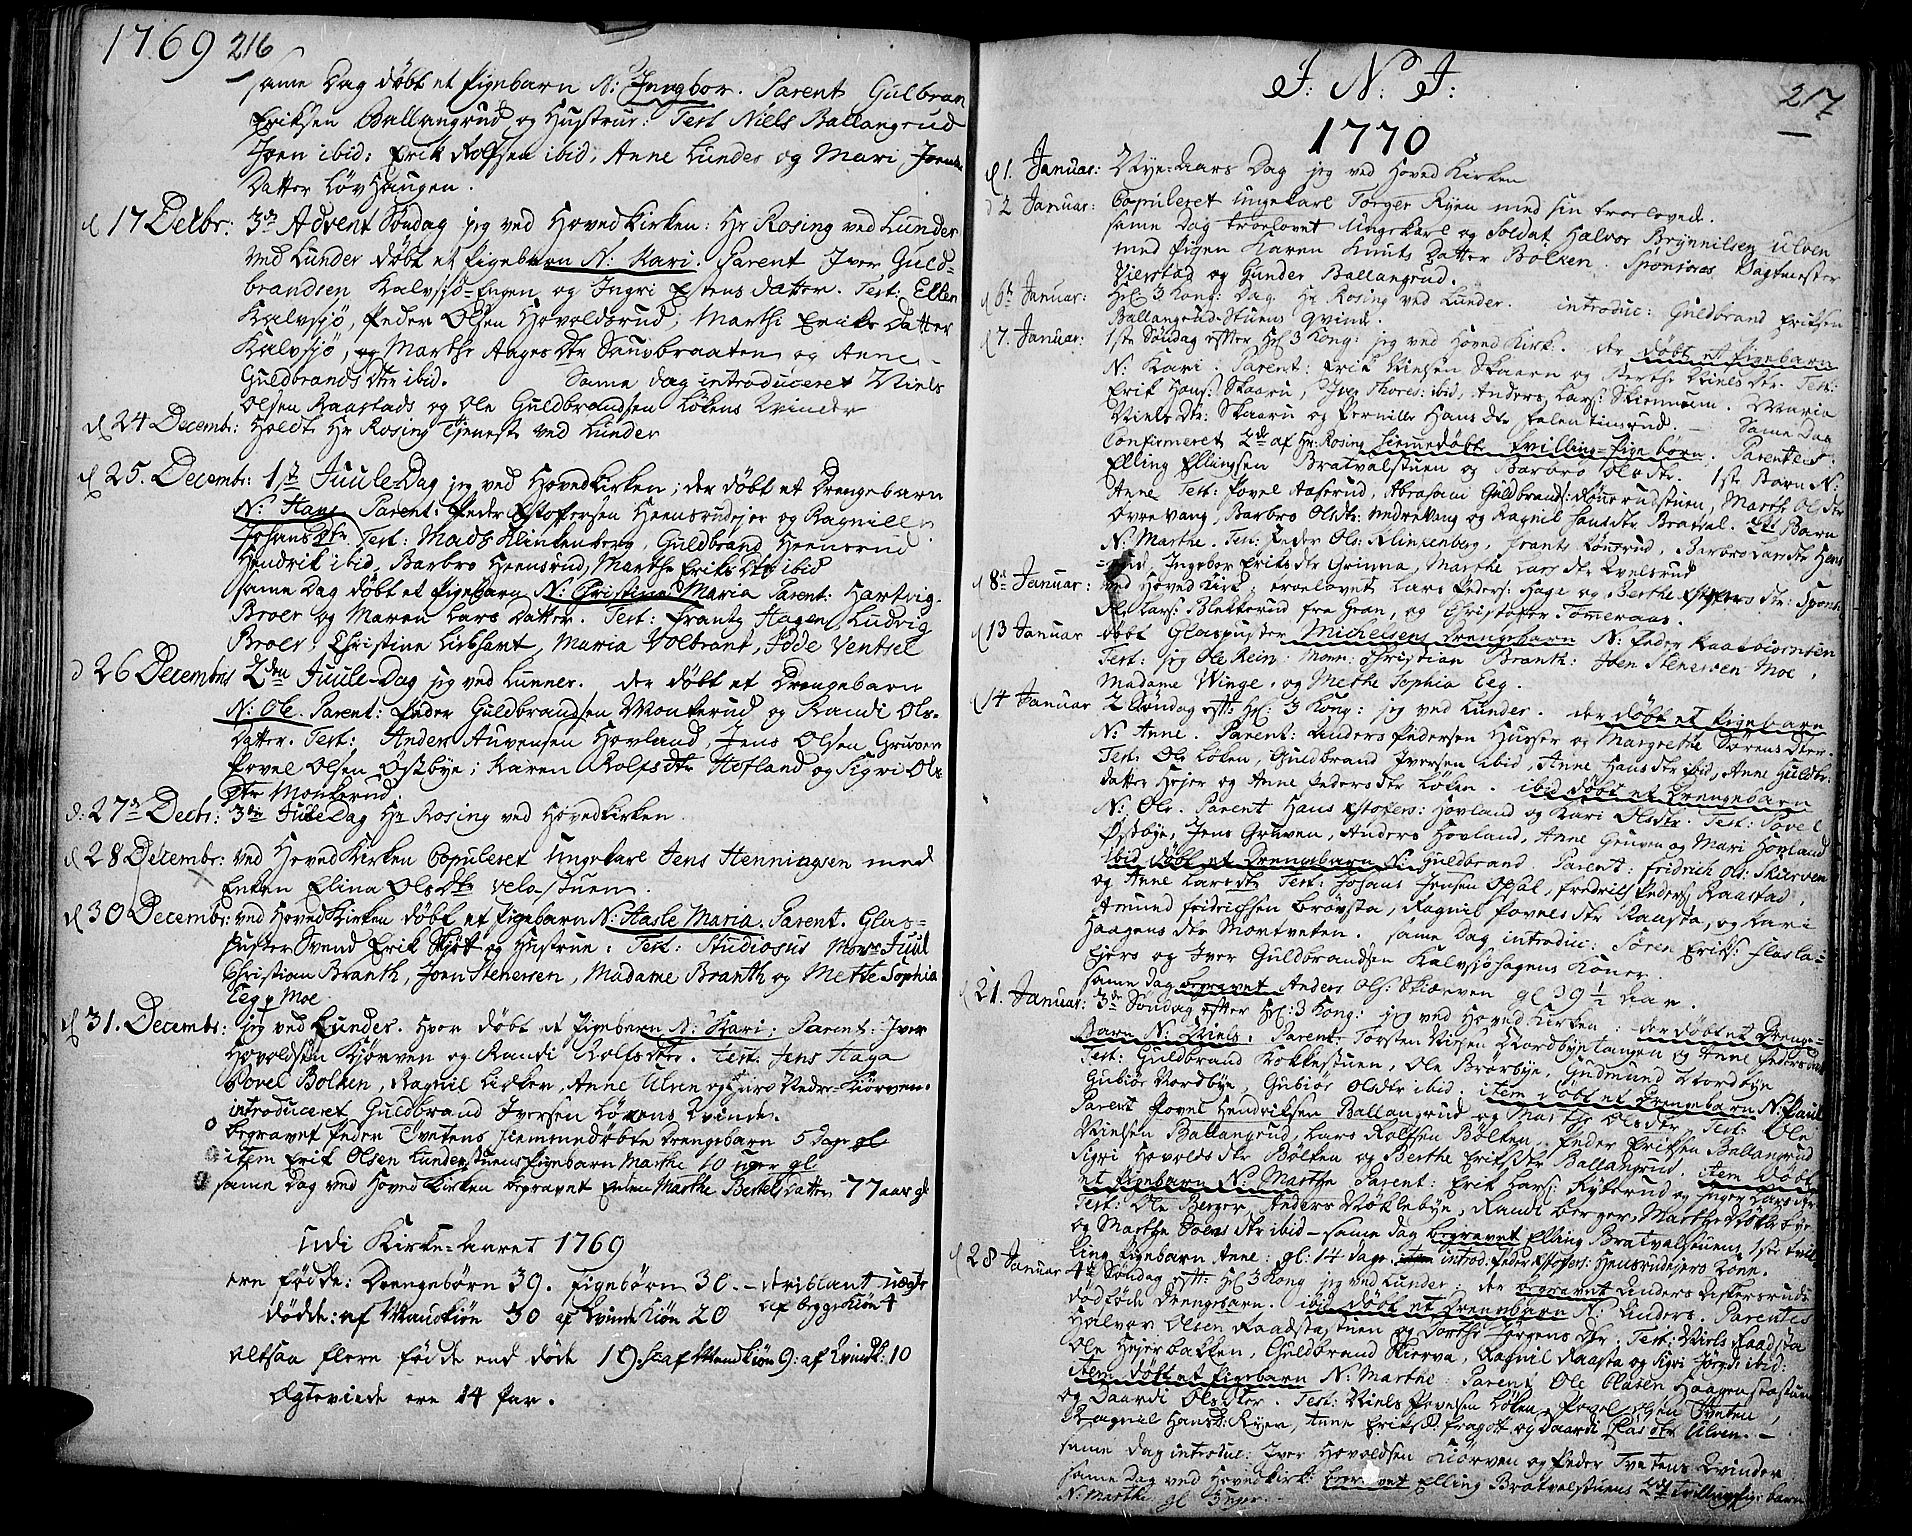 1769 216
same Dag döbt et Pigebarn N: Ingbor. Parent Gulbran
Eriksen Ballangrud og Hustrue: Test Niels Ballangrud
Joen ibid: Erik Rolfsen ibid, Anne Lunder og Mari Joens
Datter Lövhaugen.
d 17 Decbr: 3die Advent Söndag jeg ved Hovedkirken: Hr Rosing ved Lunder
Ved Lunder döbt et Pigebarn N: Kari. Parent Iver Guld-
brandsen Kalvsjö-Engen og Ingri Estens datter. Test: Ellen
Kalvsjö, Peder Olsen Hovoldsrud; Marthe Eriks Datter
Kalvsjö, og Marthe Aagesdtr Sauobraaten og Anne
Guldbrands dtr ibid. Same dag introduceret Niels
Olsen Raastads og Ole Guldbrandsen Lökens Qvinder
d 24 Decembr: Holdt Hr Rosing Tjeneste ved Lunder
d 25. Decembr: 1ste Juule-Dag jeg ved Hovedkirken; der döbt et Drengebarn
N: Hans Parent: Peder Xstofersen Heensrudejer og Ragnille
Johansdtr. Test: Mads Klinkenberg, Guldbrand Heensrud
Hendrik ibid, Barbro Heensrud, Marthe Eriks dtr ibid
same Dag döbt et Pigebarn N: Christine Maria Parent: Hartvig
Broer og Maren Lars Datter. Test: Frantz Hagen, Ludvig
Broer, Christine Liebhart, Maria Volbrant, Jöde Ventsel
d 26 Decembris 2den Juule-Dag jeg ved Lunner. der döbt et Drengebarn
N: Ole. Parent: Peder Guldbrandsen Monkerud og Randi Ols-
Datter. Test: Anders Auvensen Hovland, Jens Olsen Gruven
Povel Olsen Östbye; Karen Rolfsdtr Hofland og Sigri Ols
dtr Monkerud
d: 27de Decbr: 3die Jule Dag Hr Rosing ved Hovedkirken
d 28 Decembr: ved Hoved Kirken Copuleret Ungekarl Jens Henningsen med
Enken Elina Olsdtr velo-stuen.
d 30 Decembr: ved Hoved Kirken döbt et Pigebarn N: Aasle Maria. Parent. Glas-
puster Svend Erik Skjöt og Hustrue. Test: Studiosus Monsr Juul
Christian Branth, Joen Stenersen, Madame Branth og Mette Sophia
Eeg Moe
d 31. Decembr: jeg ved Lunder. Hvor döbt et Pigebarn N: Kari: Parent: Iver
Hovoldsen Kjörven og Randi Rolfsdtr. Test: Jens Haga
Povel Bolken, Ragnil Lieker, Anne Ulven og Guro Nedre-Kiörven.
introduceret Guldbrand Iversen Lökens Qvinde.
begravet Peder Tvetens hiemmedöbte Drengebarn 5 Dage gl
item Erik Olsen Lunderstuens Pigebarn Marthe 10 uger gl
same Dag ved Hoved Kirken begravet Enken Marthe Bertels Datter 77 aar gl
Udi Kirke-Aaret 1769
ere födde: Drengebörn 39. Pigebörn 30. – deriblant uægte
af begge Kiön 4
dödde: af Mandkiön 30 af Qvinde Kiön 20
altsaa flere födde end döde 19. sc: af Mandkiön 9: af Qvindk: 10
Ægteviede ere 14 Par.
J: N: J: 217
1770
d 1. Januar: Nye-Aars Dag jeg ved Hoved Kirken
d 2 Januar: Copuleret Ungekarl Torger Ryen med sin troelovede.
same Dag troelovet Ungekarl og Soldat Halvor Brynnilsen Ulven
med Pigen Karen Knuts Datter Bolken, Sponsores Vagtmester
Sierstad og Gunder Ballangrud.
d 6te Januar: Hel: 3 Kong: Dag Hr Rosing ved Lunder. introduc: Guldbrand Eriksen
Ballangrud-Stuens Qvinde.
d 7. Januar: 1ste Söndag efter Hel: 3 Kong: jeg ved Hoved Kirk. der döbt et Pigebarn
N: Kari. Parent: Erik Nielsen Skaarn og Berthe Nielsdtr. Test:
Erik Hans: Skaarn, Iver Thores: ibid, Anders Lars: Skiennum. Maria
Nielsdtr: Skaarn og Pernille Hans dtr Falentinsrud. – Same Dag
Confirmeret 2de af Hr: Rosing hiemedöbte Tvilling-Pigebörn. Parentes:
Elling Ellingsen Bratvalstuen og Barbro Olsdtr. 1ste Barn N:
Anne Test: Povel Aaserud, Abraham Guldbrands: Rönnerudstuen, Marthe Olsdtr
Övrevang, Barbro Olsdtr: Nedrevang og Ragnil Hansdtr Bratval. 2de Barn
N: Marthe. Test: Peder Ols: Klinkenberg, Frants Könsrud, Barbro Larsdtr Hens
rud, Ingebor Eriksdtr Grinna, Marthe Lars dtr Qvelsrud
d 8de Januar: ved Hoved Kirk: troelovet Lars Peders: Hage og Berthe Xstofersdtr: Spons:
Ole Lars: Blekkerud fra Gran, og Christofer Tömeraas.
d 13 Januar döbt Glaspuster Michelsens Drengebarn N: Peder Raasbiörnsen
Test: jeg Ole Rein: Monsr: Christian Branth: Joen Stenersen Moe,
Madame Winge, og Methe Sophia Eeg.
d 14 Januar 2 Söndag eft: Hel: 3 Kong: jeg ved Lunder. der döbt et Pigebarn
N: Anne. Parent: Anders Pedersen Hueser og Margrethe Sörens dter.
Test: Ole Löken, Guldbrand Iversen ibid, Anne Hansdtr ibid, Anne Guldbr:
datter Hejer og Anne Pedersdtr Löken. ibid döbt et Drengebarn
N: Ole. Parent Hans Xstofers: Hovland og Kari Olsdtr. Test: Povel
Östbye, Jens Gruven, Anders Hovland, Anne Gruven og Mari Hovland
ibid döbt et Drengebarn N: Guldbrand. Parent: Fridrich Ols: Skierven
og Anne Larsdtr Test: Johans Jensen Opsal, Fredrik Peders: Raastad,
Amund Fridrichsen Brövsta, Ragnil Povelsdtr Raasta, og Kari
Haagens dtr Mortveten. same Dag introduc: Sören Eriks: Flasla-
Ejers og Iver Guldbrandsen Kalvsjöhagens Koner.
same dag begravet Anders Ols: Skierven gl 39 ½ Aar.
d 21. Januar: 3die Söndag efter Hel: 3 Kong: jeg ved Hoved Kirken: der döbt et Drenge-
Barn N: Niels. Parent: Torsten Nilsen Nordbyetangen og Anne Pedersdatter
Test: Guldbrand Kokkestuen, Ole Brörbye, Gudmund Nordbye
Gubiör Nordbye, Gubiör Olsdtr ibid. item döbt et Drengebarn N: Paul
Parent Povel Hendriksen Ballangrud og Marthe Olsdtr, Test: Ole
Nielsen Ballangrud, Lars Rolfsen Bölken, Peder Eriksen Ballangrud
Sigri Hovolds dtr Bölken og Berthe Eriksdtr Ballangrud. item döbt
et Pigebarn N: Marthe Parent: Erik Lars: Rykerud og Inger Larsdtr
Test: Ole Berger, Anders Nöklebye, Randi Berger, Marthe Nöklebye
og Marthe Joens dtr ibid – same dag begravet Elling Bratvalstuens 1ste Tvil-
ling Pigebarn Anne: gl: 14 dage. introd: Peder Xstofers: Hensrudejers Kone.
d 28 Januar 4de Söndag eft: Hel 3 Kong jeg ved Lunder; der begravet Anders Diskersruds
dödföde Drengebarn. ibid döbt et Drengebarn N: Anders. Parentes
Halvor Olsen Raadstastuen og Dorthe Jörgens dtr. Test: Niels Raadsta
Ole Hejerbakken, Guldbrand Skierva, Ragnil Raasta og Sigri Jörgd: ibid:
item döbt et Pigebarn N: Marthe: Parent Ole Olasen Haagenstastuen
og Daardi Olsdter. Test: Niels Povelsen Löken, Povel Tveten,
Ragnil Hansd: Ryen, Anne Eriksd: og Daardi Ulven. –
same dag introduc: Iver Hovoldsen Kiörven og Peder Tvetens Qvinder
same Dag ved Hovedkirk: begravet Elling Bratvalstuens 2det Tvilling Pigebarn
N: Marthe gl 3 uger.